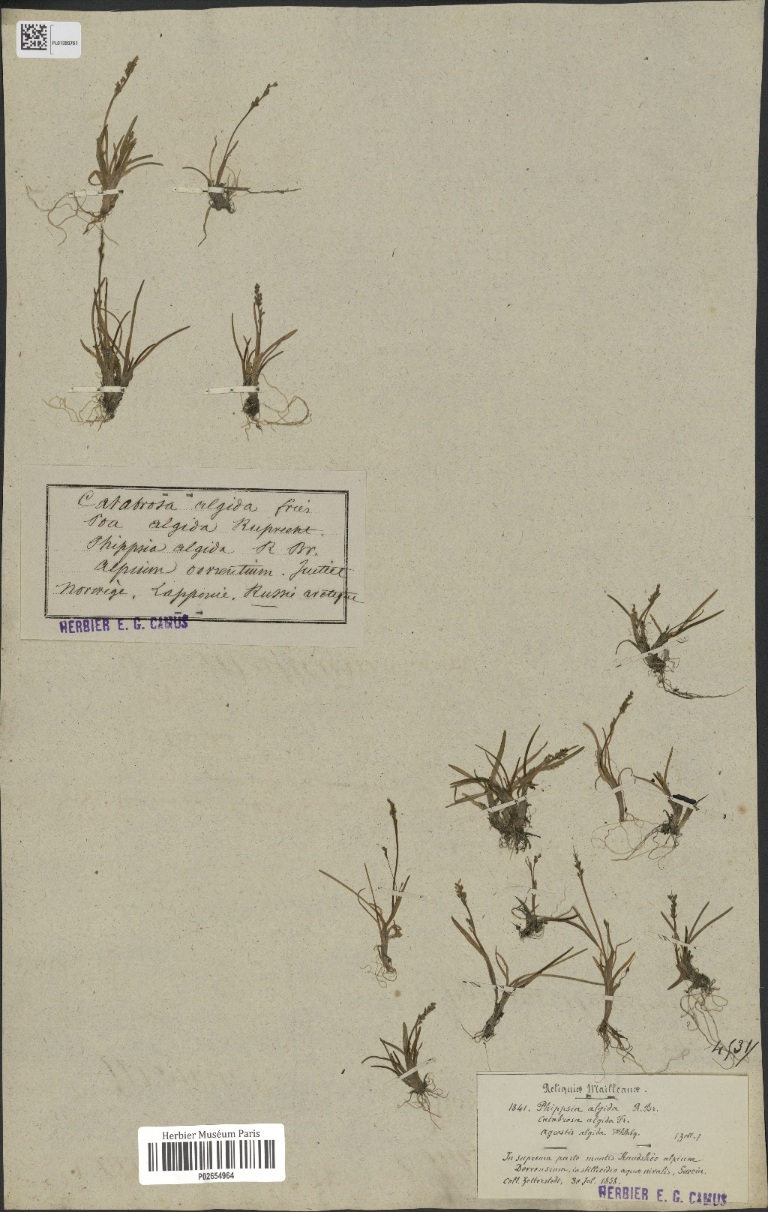 Catabrosa algida fries
Poa algida Ruprecht.
Phippsia algida R Br.
alpium
Norvège, Lapponie, Russie arctique
HERBIER E. G. CAMUS
4(31
Reliquiæ Mailleanæ.
1841. Phippsia algida R. Br.
Catabrosa algida Fr.
Agrostis algida Whlbg.
In suprema parte montis alpium
aquæ nivalis, Suecia.
Coll. Zetterstedt, 30 Jul. 1838.
HERBIER E. G. CAMUS
Herbier Muséum Paris
P02654964